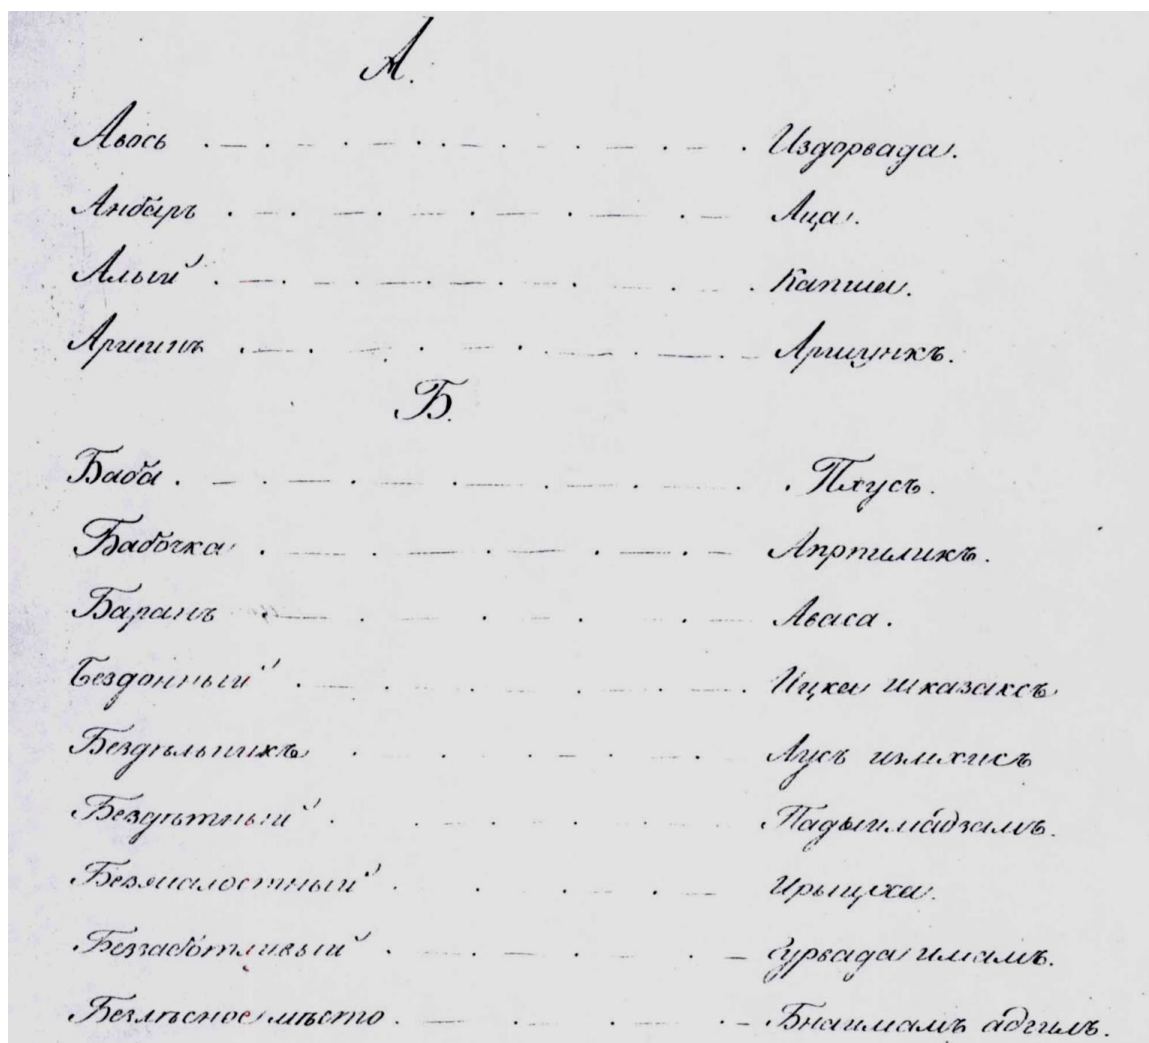 А.
Авось Издорвада.
Анбаръ Аца.
Алый Капша.
Аршинъ Аршункъ.
Б.
Баба Пхусъ.
Бабочка Апрпиликъ.
Баранъ Аваса.
Бездонный Ицка шказаксъ
Бездѣльникъ Аусъ
Бездѣтный Падыгимадзамъ.
Безжалостный
Беззаботливый Гурвада имамъ.
Безлѣсное мѣсто Бнаимамъ адгилъ.